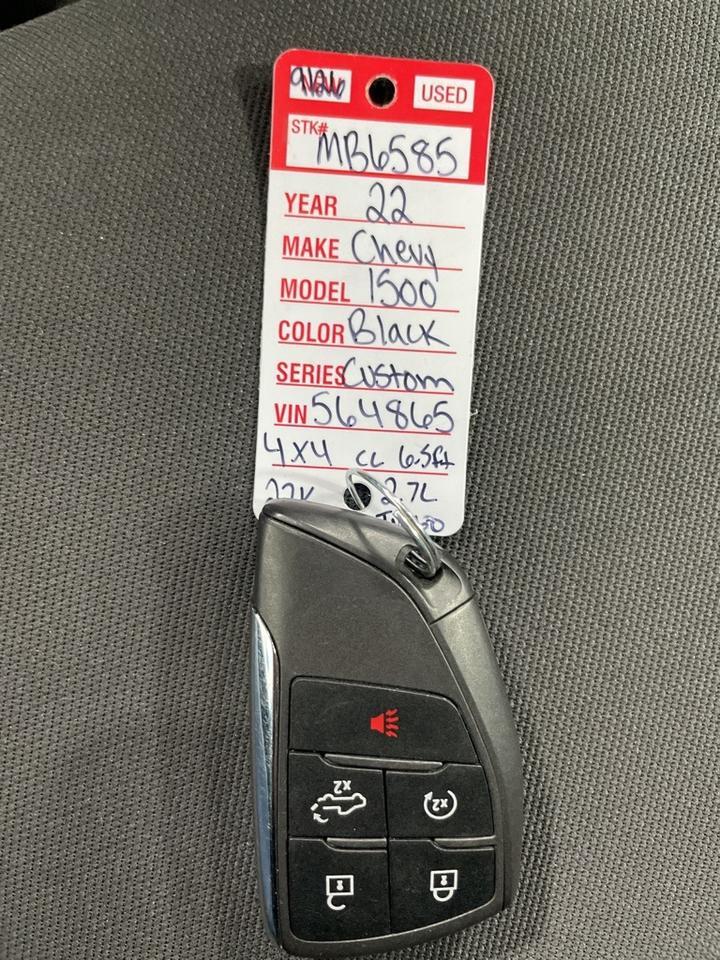 9126 USED
STK# MB6585
YEAR 22
MAKE Chevy
MODEL 1500
COLOR Black
SERIES Custom
VIN 564865
4X4 CC 6.5ft
22K 2.7L
x2 x2